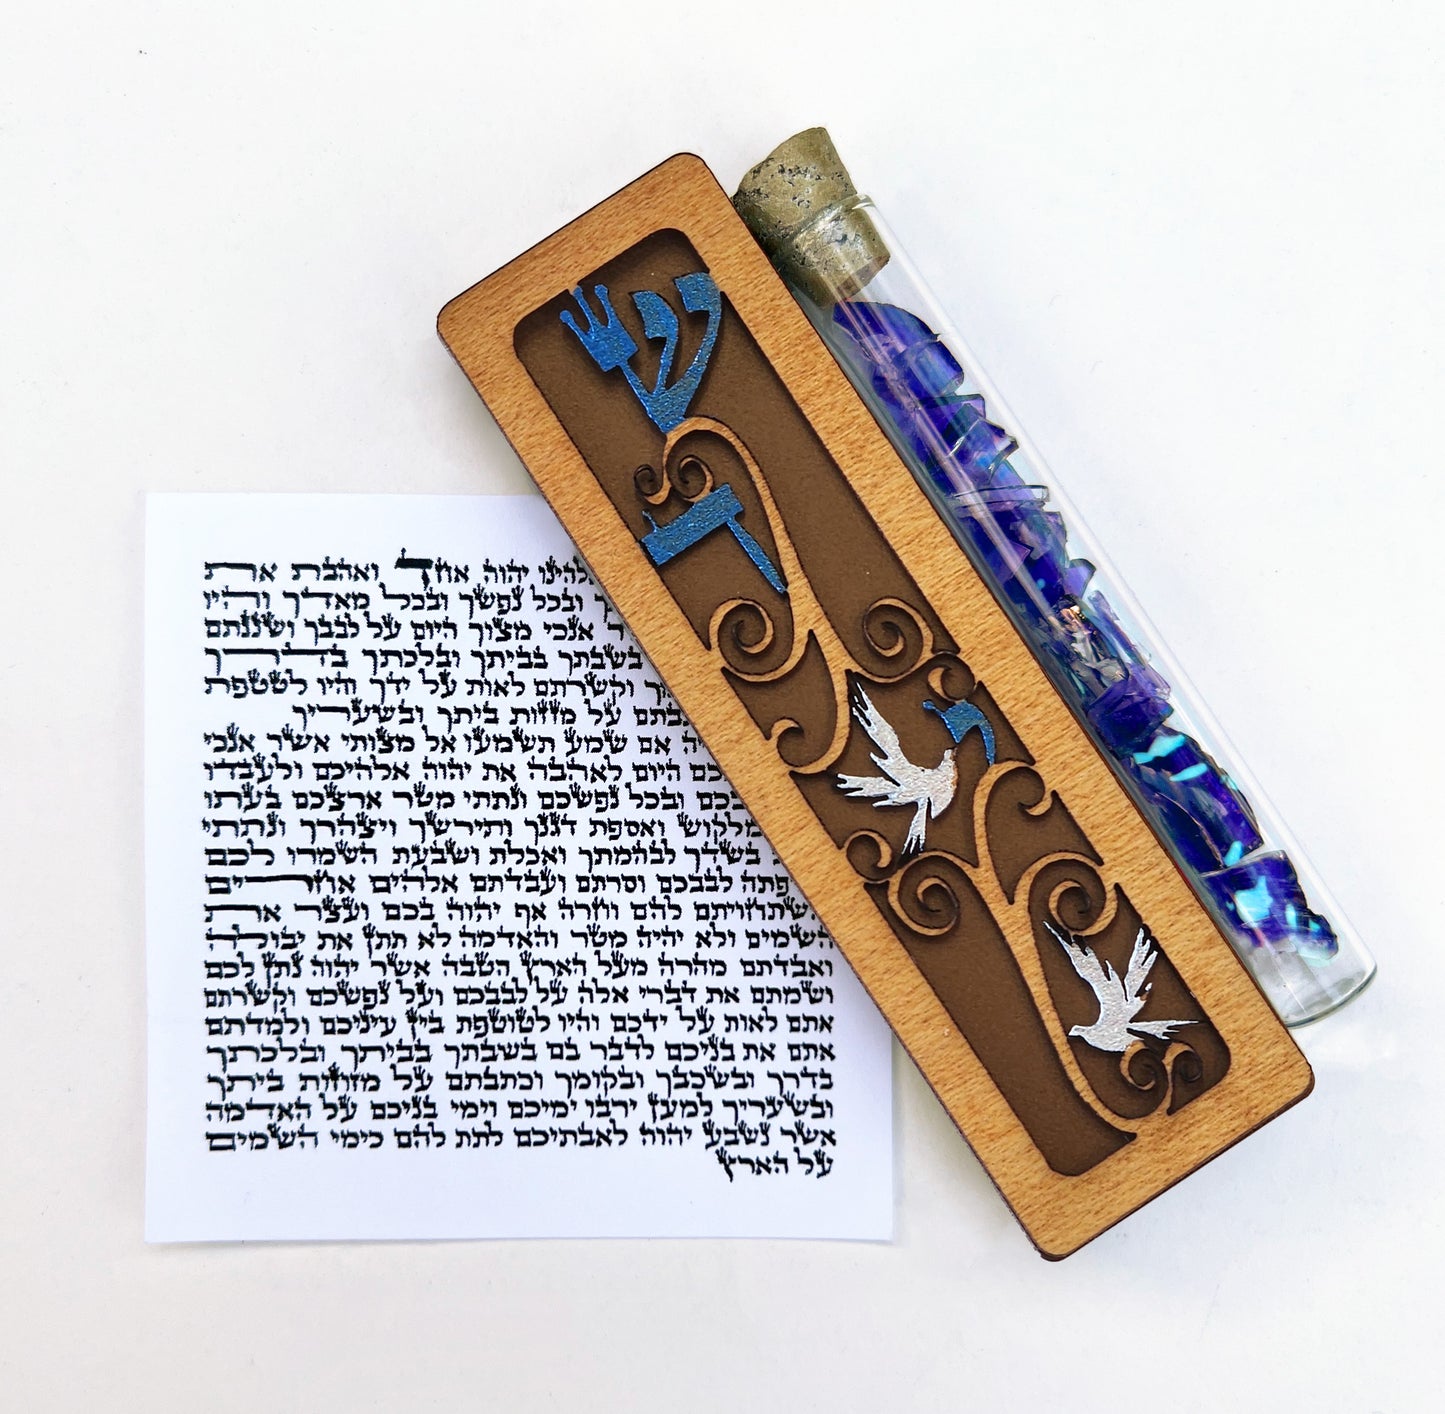 ש
ד
י
יהוה אחד ואהבת את
ובכל נפשך ובכל מאדך והיו
אנכי מצוך היום על לבבך ושננתם
בשבתך בביתך ובלכתך בדרך
וקשרתם לאות על ידך והיו לטטפת
על מזזות ביתך ובשעריך
אם שמע תשמעו אל מצותי אשר אנכי
היום לאהבה את יהוה אלהיכם ולעבדו
ובכל נפשכם ונתתי מטר ארצכם בעתו
ואספת דגנך ותירשך ויצהרך ונתתי
בשדך לבהמתך ואכלת ושבעת השמרו לכם
לבבכם וסרתם ועבדתם אלהים אחרים
להם וחרה אף יהוה בכם ועצר את
השמים ולא יהיה מטר והאדמה לא תתן את יבולה
ואבדתם מהרה מעל הארץ הטבה אשר יהוה נתן לכם
ושמתם את דברי אלה על לבבכם ועל נפשכם וקשרתם
אתם לאות על ידכם והיו לטוטפת בין עיניכם ולמדתם
אתם את בניכם לדבר בם בשבתך בביתך ובלכתך
בדרך ובשכבך ובקומך וכתבתם על מזוזות ביתך
ובשעריך למען ירבו ימיכם וימי בניכם על האדמה
אשר נשבע יהוה לאבתיכם לתת להם כימי השמים
על הארץ